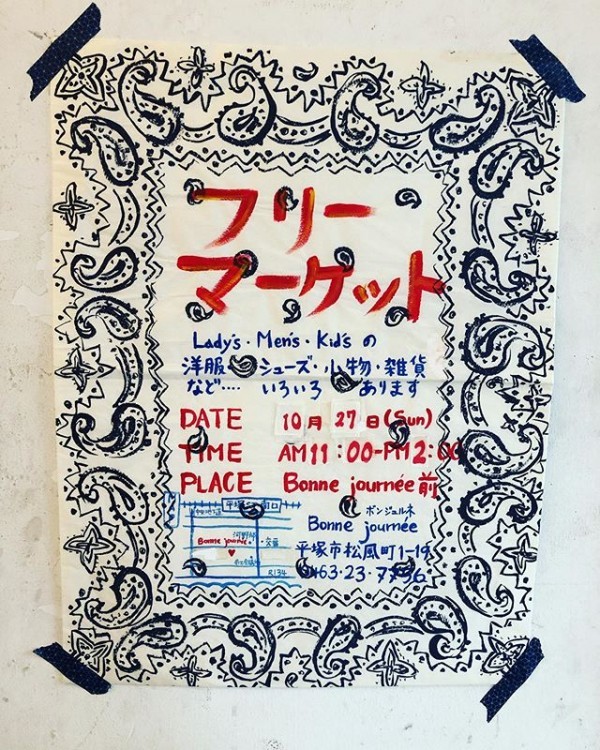 フリー
マーケット
Lady's・Men's・Kid'sの
洋服・シューズ・小物・雑貨
など‥‥ いろいろ あります
DATE 10月27日(Sun)
TIME AM11:00-PM2:00
PLACE Bonne journée 前
ボンジュルネ
Bonne journée
平塚市松風町1-19
Bonne journée
R134